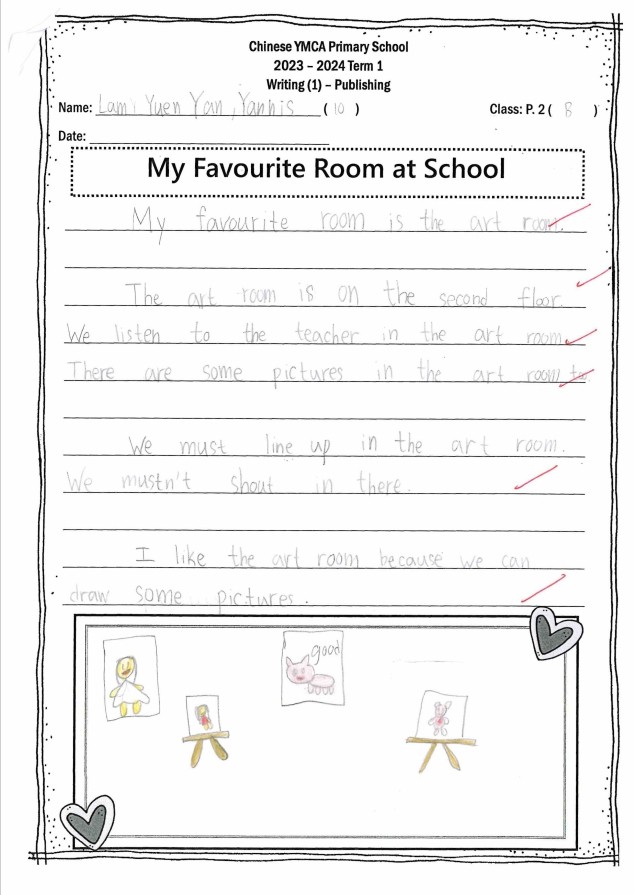 Chinese YMCA Primary School
2023 – 2024 Term 1
Writing (1) – Publishing
Name: Lam Yuen Yan, Yannis ( 10 ) Class: P. 2 ( B )
Date:
My Favourite Room at School
My favourite room is the art room.
The art room is on the second floor.
We listen to the teacher in the art room.
There are some pictures in the art room
We must line up in the art room.
We mustn't shout in there.
I like the art room because we can
draw some pictures.
good